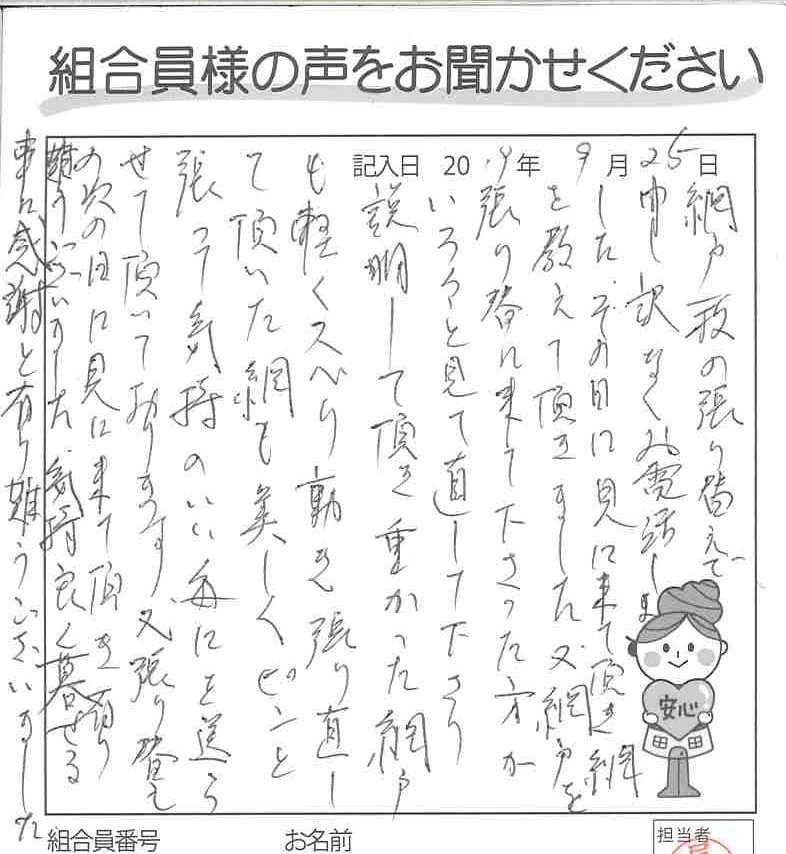 組合員様の声をお聞かせください
記入日 2019年9月25日
網戸一枚の張り替えで
申し訳なくお電話しま
した。その日に見に来て頂き網
を教えて頂きました又網戸を
張り替に来て下さった方が
いろ々と見て直して下さり
説明して頂き重かった網戸
も軽くスベリ動き張り直し
て頂いた網も美しくピンと
張って気持のいい毎日を送ら
せて頂いております 又張り替え
の次の日に見に来て頂き有り
難うございました 気持良く暮せる
事に感謝と有り難うございました
安心
組合員番号
お名前
担当者